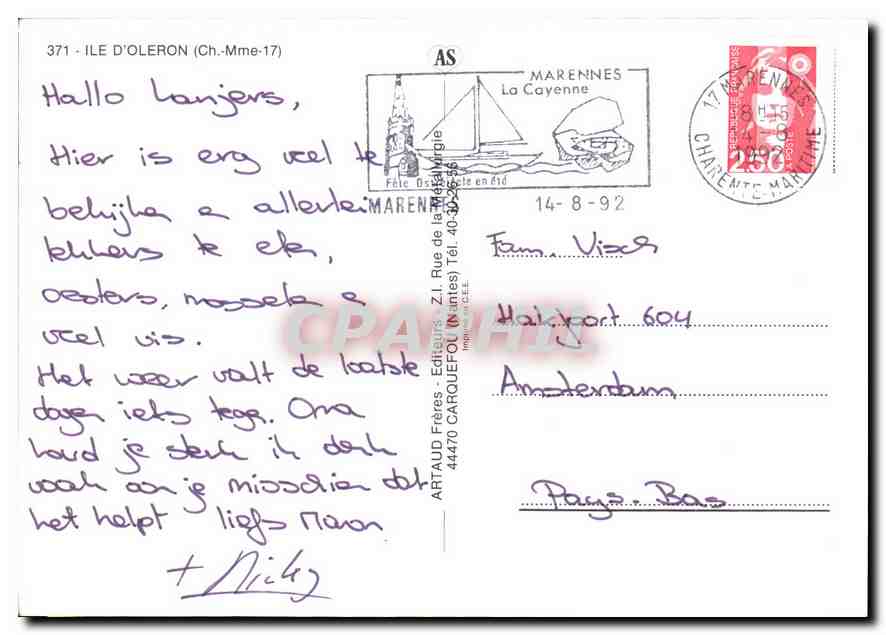 371 - ILE D'OLERON (Ch.-Mme-17)
AS
Hallo Lanjers,
Hier is erg veel te
bekijken en allerlei
lekkers te eten,
oesters, mosselen en
veel vis.
Het weer valt de laatste
dagen iets tegen. Oma
houd je sterk ik denk
vaak aan je misschien dat
het helpt liefs Manon
+ Nicky
ARTAUD Frères - Editeurs - Z.I. Rue de la Métallurgie
44470 CARQUEFOU (Nantes) Tél. 40-30-26-56
Imprimé en C.E.E.
MARENNES
La Cayenne
en été
MARENNES
14-8-92
17 MARENNES
8H15
14-8
1992
CHARENTE-MARITIME
REPUBLIQUE FRANÇAISE
2,50
LA POSTE
Fam. Visch
Hakfort 604
Amsterdam
Pays-Bas
CPARHIL